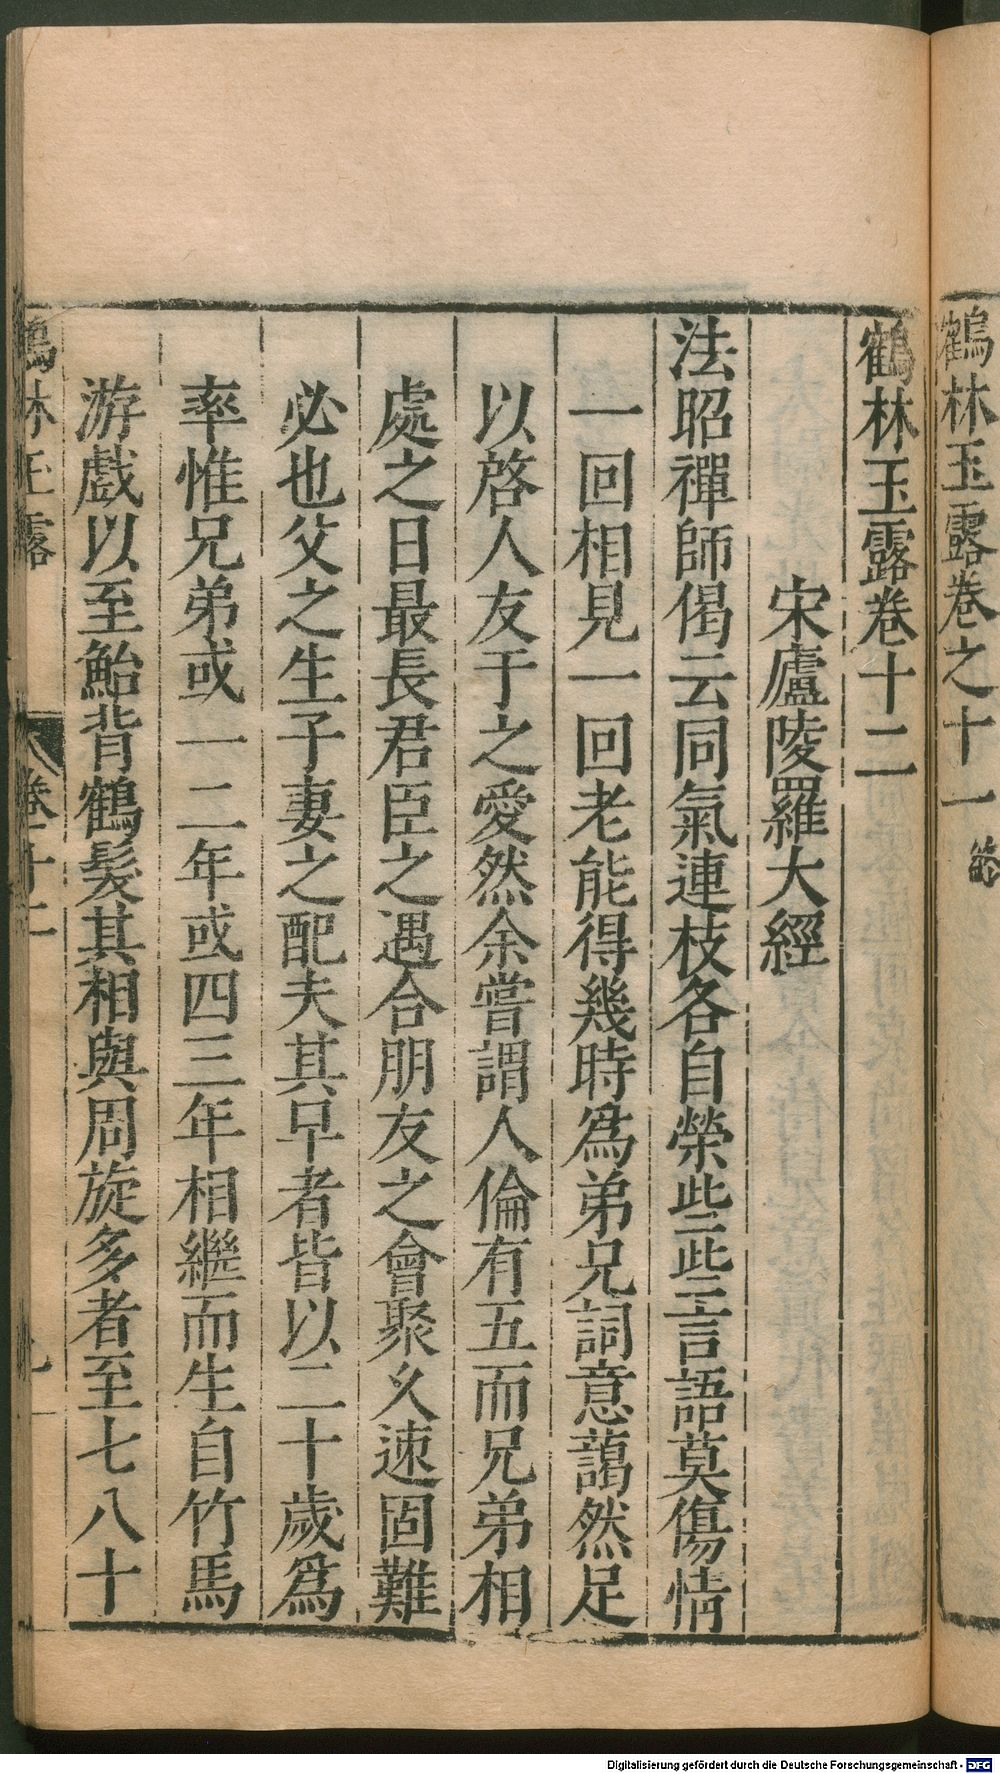 鶴林玉露卷之十一 終
鶴林玉露卷十二
宋廬陵羅大經
法昭禪師偈云同氣連枝各自榮些些言語莫傷情
一回相見一回老能得幾時爲弟兄詞意藹然足
以啓人友于之愛然余嘗謂人倫有五而兄弟相
處之日最長君臣之遇合朋友之會聚久速固難
必也父之生子妻之配夫其早者皆以二十歲爲
率惟兄弟或一二年或四三年相繼而生自竹馬
游戲以至鮐背鶴髮其相與周旋多者至七八十
鶴林玉露 卷十二
Digitalisierung gefördert durch die Deutsche Forschungsgemeinschaft - DFG